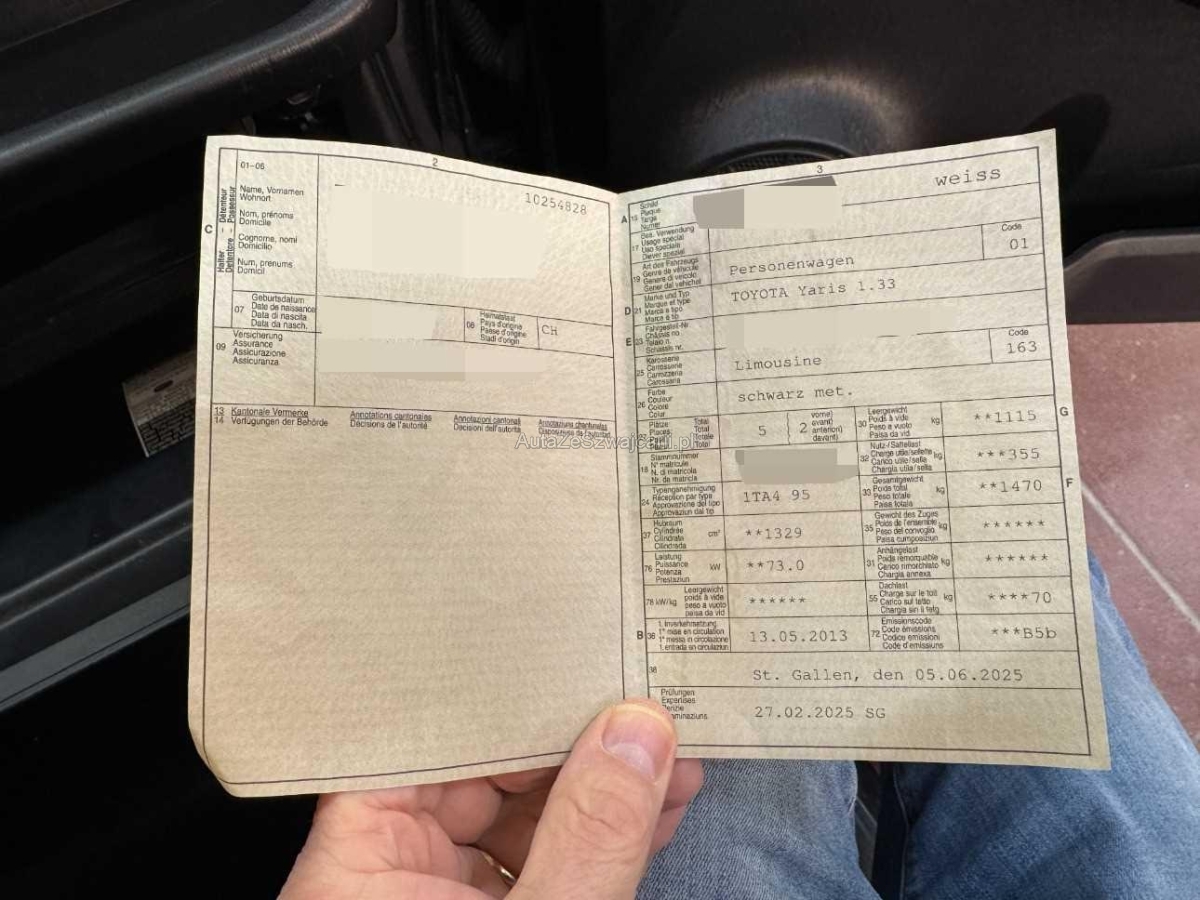 2
01-06
10254828
C
Halter Détenteur
Detentore Possessur
Name, Vornamen
Wohnort
Nom, prénoms
Domicile
Cognome, nomi
Domicilio
Num, prenums
Domicil
07
Geburtsdatum
Date de naissance
Data di nascita
Data da nasch.
Heimatstaat
Pays d'origine
Paese d'origine
Stadi d'origin
CH
09
Versicherung
Assurance
Assicurazione
Assicuranza
13
14
Kantonale Vermerke
Verfügungen der Behörde
Annotations cantonales
Décisions de l'autorité
Annotazioni cantonali
Decisioni dell'autorità
Annotaziuns chantunalas
Disposiziuns da l'autoritad
AutaZeSzwajcarii.pl
3
weiss
A
15
Schild
Plaque
Targa
Numer
17
Bes. Verwendung
Usage spécial
Uso speciale
Diever spezial
19
Art des Fahrzeugs
Genre de véhicule
Genere di veicolo
Gener dal vehichel
Personenwagen
Code
01
D
21
Marke und Typ
Marque et type
Marca e tipo
Marca e tip
TOYOTA Yaris 1.33
E
23
Fahrgestell-Nr.
Châssis no
Telaio n.
Schassis nr.
25
Karosserie
Carrosserie
Carrozzeria
Carossaria
Limousine
Code
163
26
Farbe
Couleur
Colore
Colur
schwarz met.
Plätze Total
Places Total
Totale
Total
5
2
vorne)
avant)
anteriori)
davant)
30
Leergewicht
Poids à vide
Peso a vuoto
Paisa da vid
kg
**1115
G
18
Stammnummer
N° matricule
N. di matricola
Nr. da matricla
32
Nutz-/Sattellast
Charge utile/sellette
Carico utile/sella
Chargia utila/sella
kg
***355
24
Typengenehmigung
Réception par type
Approvazione del tipo
Approvaziun dal tip
1TA4 95
33
Gesamtgewicht
Poids total
Peso totale
Paisa totala
kg
**1470
F
37
Hubraum
Cylindrée
Cilindrata
Cilindrada
cm³
**1329
35
Gewicht des Zuges
Poids de l'ensemble
Peso del convoglio
Paisa cumposiziun
kg
******
76
Leistung
Puissance
Potenza
Prestaziun
kW
**73.0
31
Anhängelast
Poids remorquable
Carico rimorchiato
Chargia annexa
kg
******
78 kW/kg
Leergewicht
poids à vide
peso a vuoto
paisa da vid
******
55
Dachlast
Charge sur le toit
Carico sul tetto
Chargia sin il tetg
kg
****70
B
36
1. Inverkehrsetzung
1re mise en circulation
1a messa in circolazione
1. entrada en circulaziun
13.05.2013
72
Emissionscode
Code émissions
Codice emissioni
Code d'emissiuns
***B5b
38
St. Gallen, den 05.06.2025
Prüfungen
Expertises
27.02.2025 SG